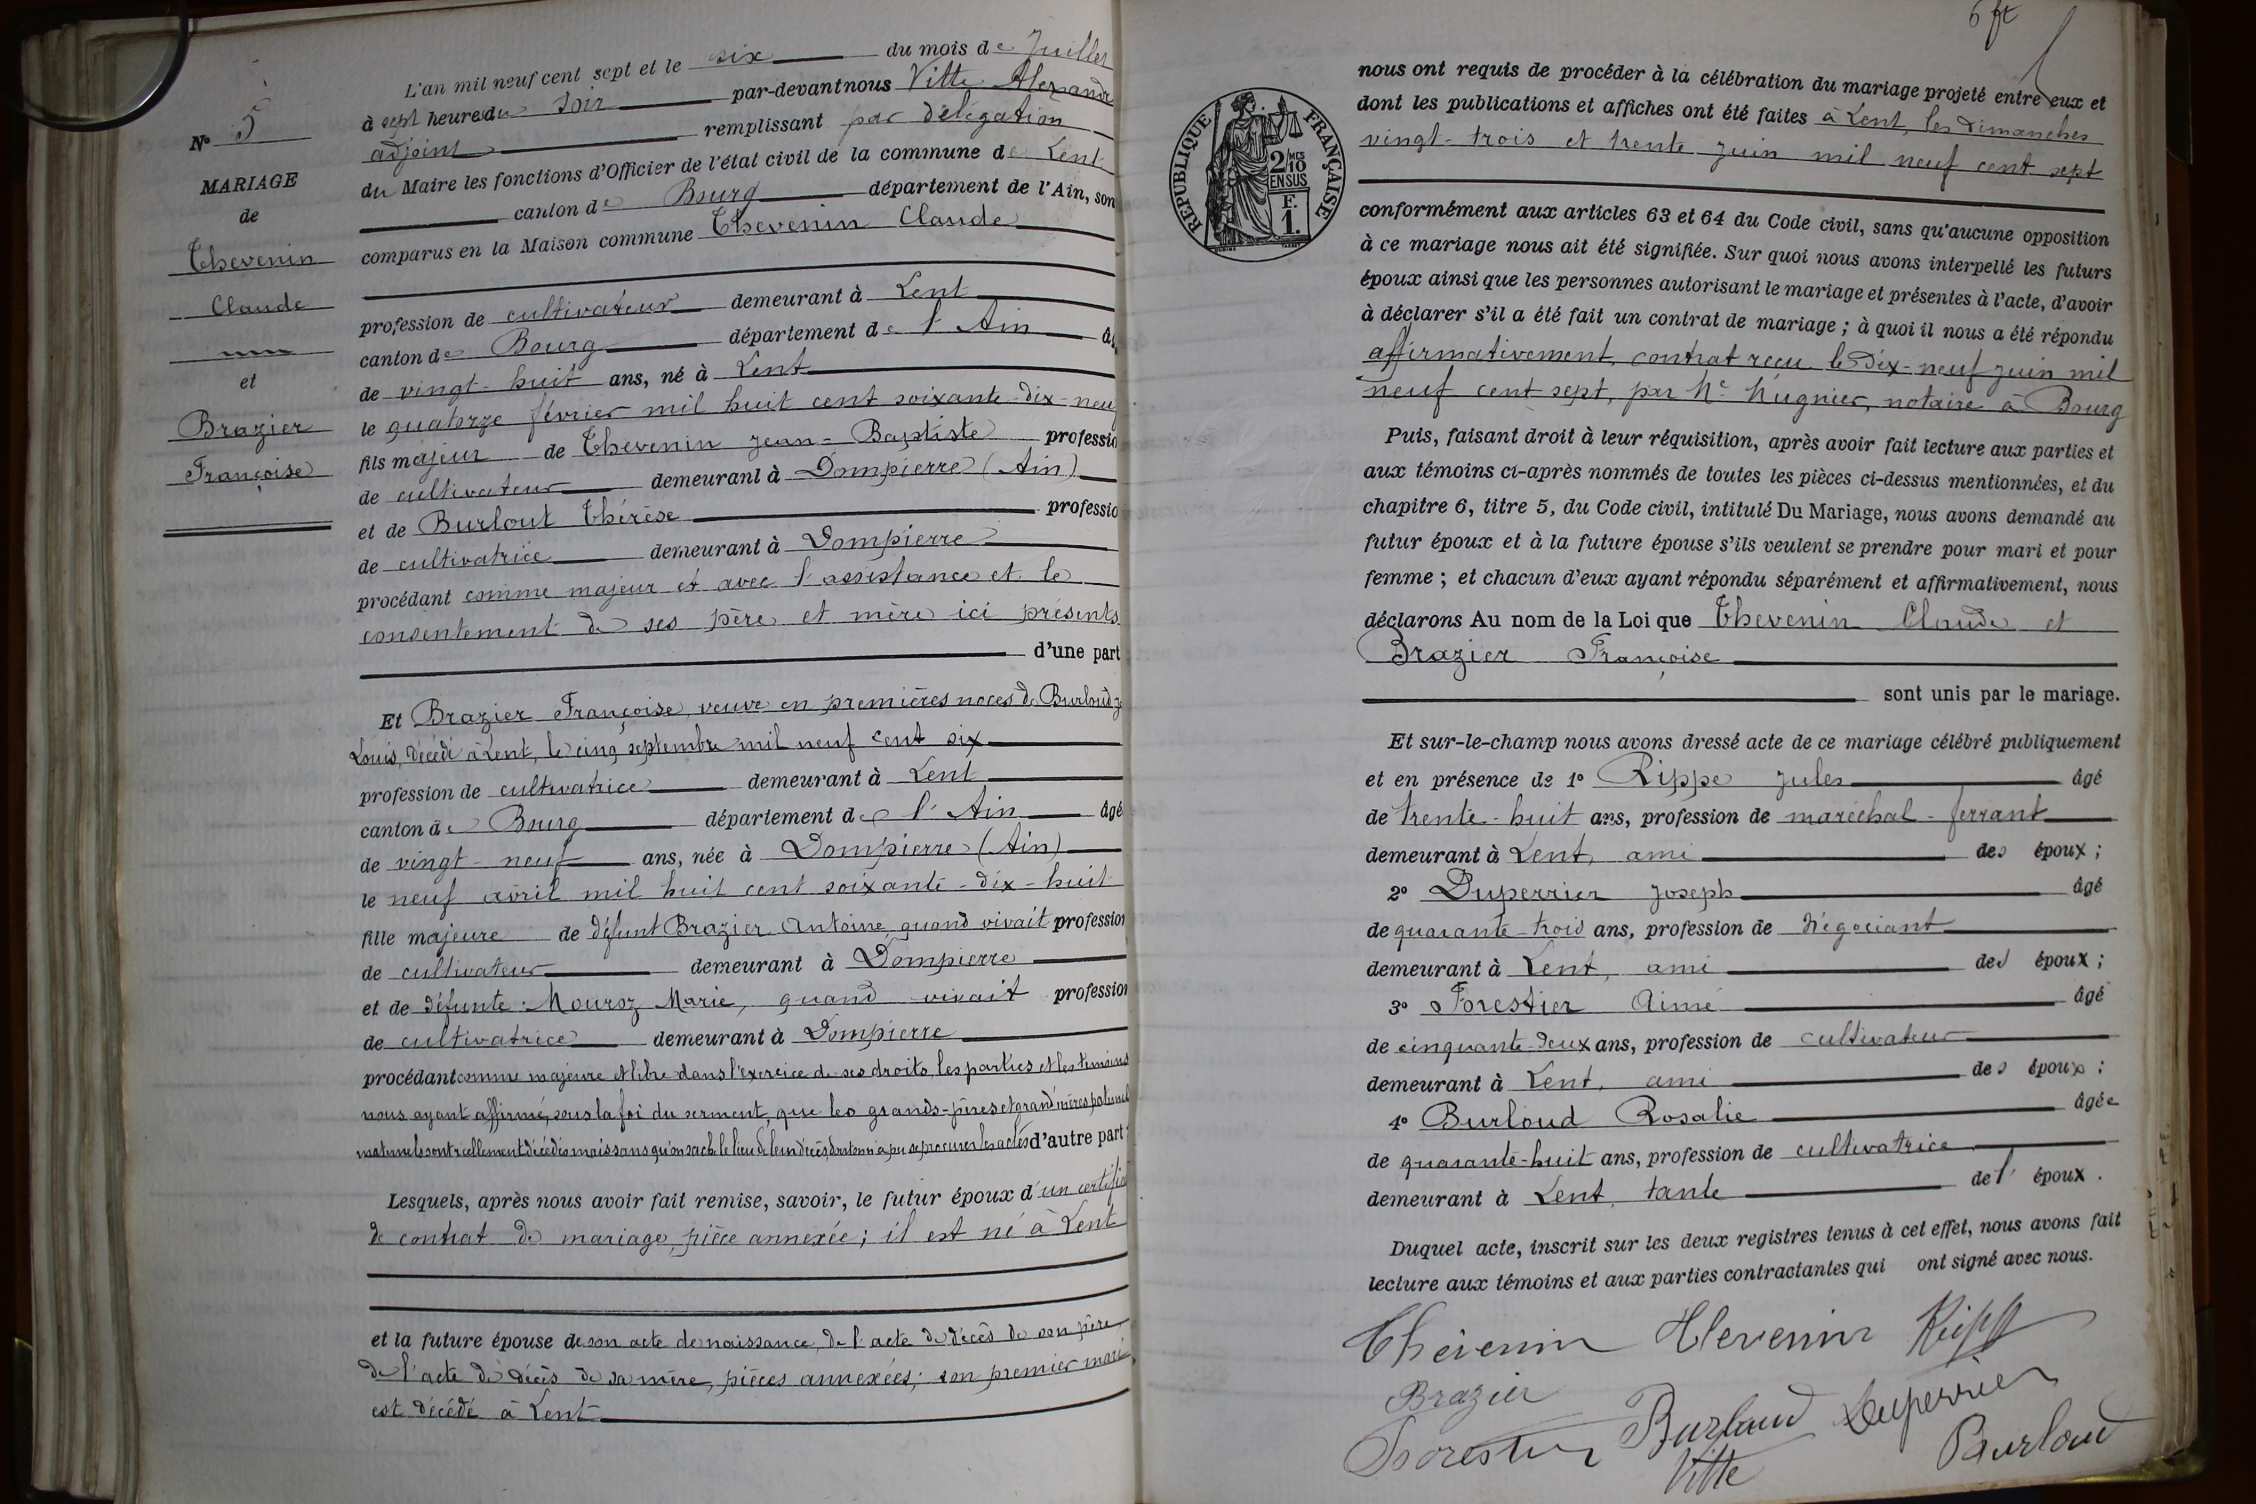 N° 5
MARIAGE
de
Thevenin
Claude
et
Brazier
Françoise
L'an mil neuf cent sept et le six du mois de Juillet
à sept heures du Soir par-devant nous Vitte Alexandre
adjoint remplissant par délégation
du Maire les fonctions d'Officier de l'état civil de la commune de Lent
canton de Bourg département de l'Ain, son
comparus en la Maison commune Thevenin Claude
profession de cultivateur demeurant à Lent
canton de Bourg département de l'Ain
de vingt-huit ans, né à Lent
le quatorze février mil huit cent soixante-dix-neuf
fils majeur de Thevenin Jean-Baptiste professio
de cultivateur demeurant à Dompierre (Ain)
et de Burlout Thérèse professio
de cultivatrice demeurant à Dompierre
procédant comme majeur et avec l'assistance et le
consentement de ses père et mère ici présents
d'une part
Et Brazier Françoise, veuve en premières noces de Burloud
Louis, décédé à Lent, le cinq septembre mil neuf cent six
profession de cultivatrice demeurant à Lent
canton de Bourg département de l'Ain âgé
de vingt-neuf ans, née à Dompierre (Ain)
le neuf avril mil huit cent soixante-dix-huit
fille majeure de défunt Brazier Antoine quand vivait profession
de cultivateur demeurant à Dompierre
et de défunte Mouroz Marie, quand vivait profession
de cultivatrice demeurant à Dompierre
procédant comme majeure et libre dans l'exercice de ses droits, les parties et les témoins
nous ayant affirmé, sous la foi du serment, que les grands-pères et grand'mères paternels
maternels sont réellement décédés mais sans qu'on sache le lieu de leurs décès, dont on n'a pu se procurer les actes d'autre part
Lesquels, après nous avoir fait remise, savoir, le futur époux d'un certificat
de contrat de mariage, pièce annexée; il est né à Lent
et la future épouse de son acte de naissance, de l'acte de décès de son père,
de l'acte de décès de sa mère, pièces annexées; son premier mari
est décédé à Lent
6 ft
RÉPUBLIQUE FRANÇAISE
2/10 MES
EN SUS
F.
1.
nous ont requis de procéder à la célébration du mariage projeté entre eux et
dont les publications et affiches ont été faites à Lent, les Dimanches
vingt-trois et trente juin mil neuf cent sept
conformément aux articles 63 et 64 du Code civil, sans qu'aucune opposition
à ce mariage nous ait été signifiée. Sur quoi nous avons interpellé les futurs
époux ainsi que les personnes autorisant le mariage et présentes à l'acte, d'avoir
à déclarer s'il a été fait un contrat de mariage ; à quoi il nous a été répondu
affirmativement, contrat reçu le Dix-neuf juin mil
neuf cent sept, par Me Mugnier, notaire à Bourg
Puis, faisant droit à leur réquisition, après avoir fait lecture aux parties et
aux témoins ci-après nommés de toutes les pièces ci-dessus mentionnées, et du
chapitre 6, titre 5, du Code civil, intitulé Du Mariage, nous avons demandé au
futur époux et à la future épouse s'ils veulent se prendre pour mari et pour
femme ; et chacun d'eux ayant répondu séparément et affirmativement, nous
déclarons Au nom de la Loi que Thevenin Claude et
Brazier Françoise
sont unis par le mariage.
Et sur-le-champ nous avons dressé acte de ce mariage célébré publiquement
et en présence de 1° Rippe Jules âgé
de trente-huit ans, profession de maréchal-ferrant
demeurant à Lent, ami des époux ;
2° Duperrier Joseph âgé
de quarante-trois ans, profession de Négociant
demeurant à Lent, ami des époux ;
3° Forestier Aimé âgé
de cinquante-deux ans, profession de cultivateur
demeurant à Lent, ami des époux ;
4° Burloud Rosalie âgée
de quarante-huit ans, profession de cultivatrice
demeurant à Lent, tante de l'époux.
Duquel acte, inscrit sur les deux registres tenus à cet effet, nous avons fait
lecture aux témoins et aux parties contractantes qui ont signé avec nous.
Thévenin Thevenin Ripp
Brazier
Forestier Burloud Duperrier
Vitte Burloud